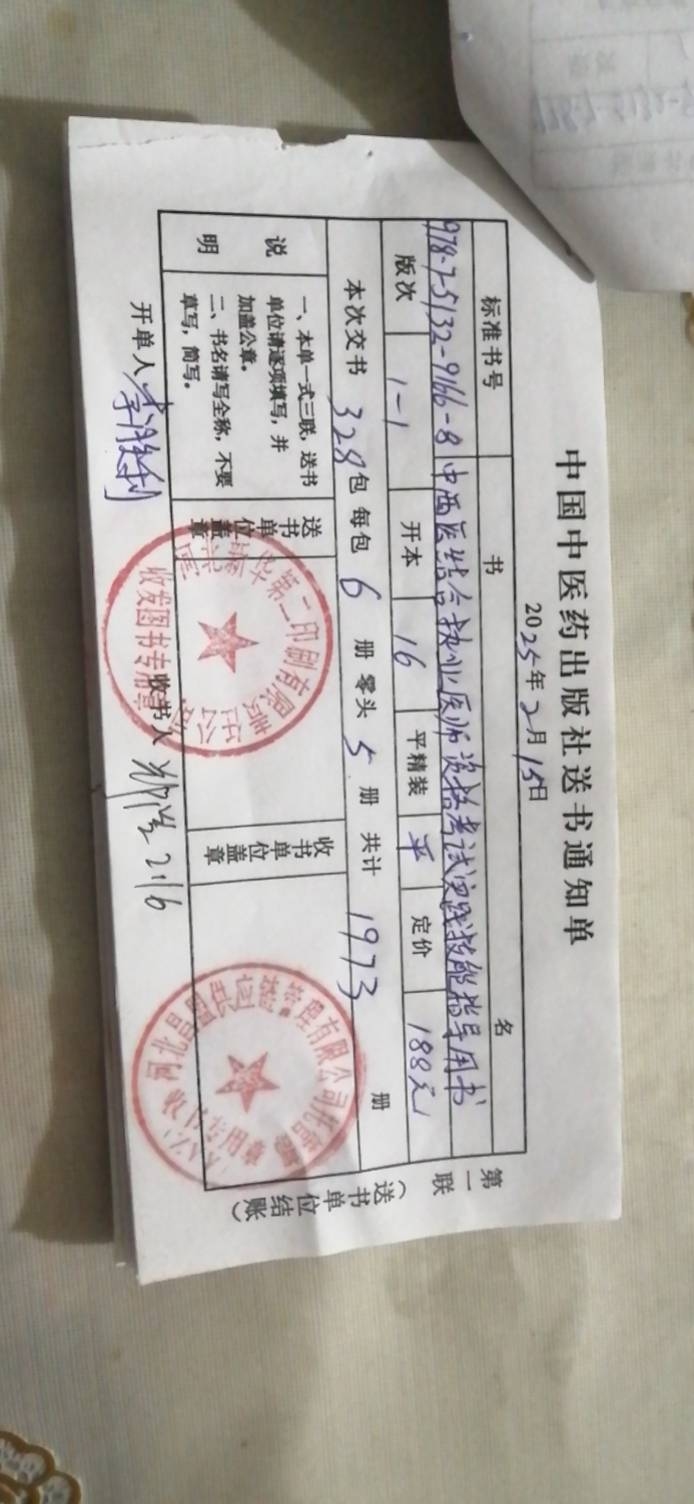 中国中医药出版社送书通知单
2025年2月15日
标准书号 书 名
978-7-5132-9166-8 中西医结合执业医师资格考试实践技能指导用书
版次 1-1 开本 16 平精装 平 定价 188元
本次交书 328 包 每包 6 册 零头 5 册 共计 1973 册
说明
一、本单一式三联，送书
单位请逐项填写，并
加盖公章。
二、书名请写全称，不要
草写，简写。
送书单位盖章
第二印刷有限责任公司
收发图书专用章
收书单位盖章
管理有限公司
收书专用章
开单人
收书人 2.16
第一联
（送书单位结账）